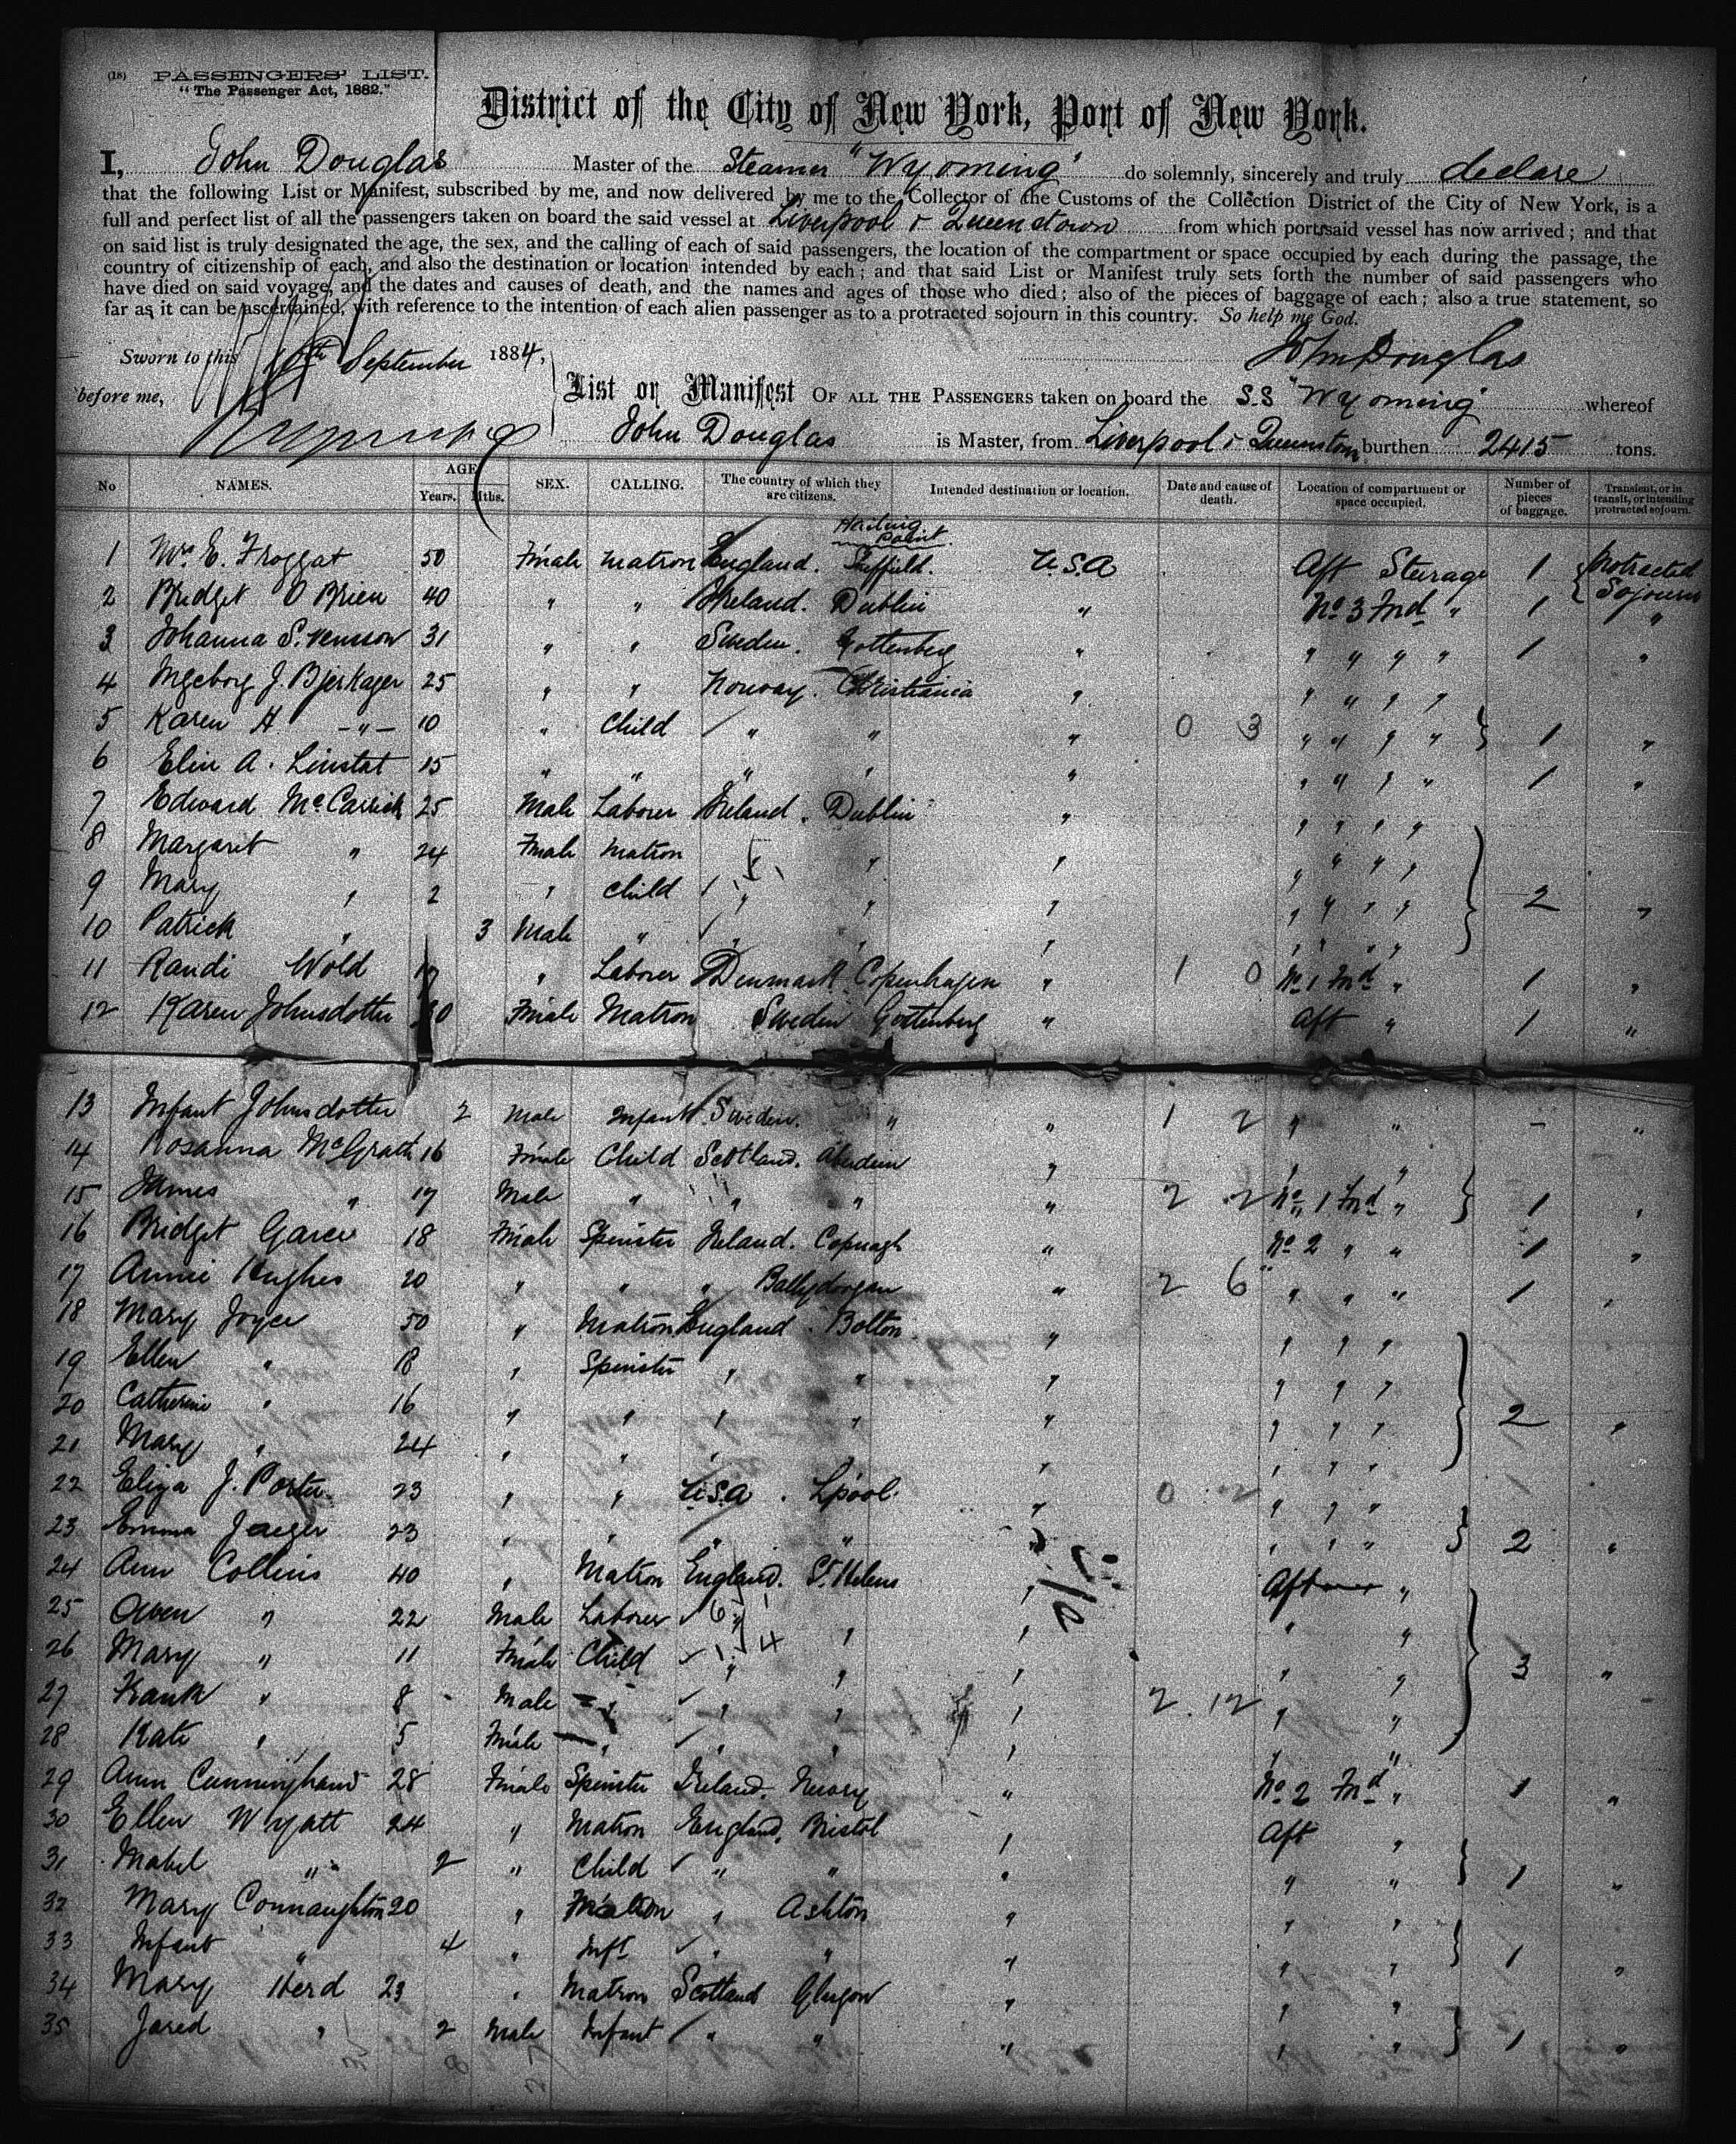 (18) PASSENGERS' LIST.
"The Passenger Act, 1882."
District of the City of New York, Port of New York.
I, John Douglas Master of the Steamer "Wyoming" do solemnly, sincerely and truly declare
that the following List or Manifest, subscribed by me, and now delivered by me to the Collector of the Customs of the Collection District of the City of New York, is a
full and perfect list of all the passengers taken on board the said vessel at Liverpool & Queenstown from which port said vessel has now arrived; and that
on said list is truly designated the age, the sex, and the calling of each of said passengers, the location of the compartment or space occupied by each during the passage, the
country of citizenship of each, and also the destination or location intended by each; and that said List or Manifest truly sets forth the number of said passengers who
have died on said voyage, and the dates and causes of death, and the names and ages of those who died; also of the pieces of baggage of each; also a true statement, so
far as it can be ascertained, with reference to the intention of each alien passenger as to a protracted sojourn in this country. So help me God.
Sworn to this 10th September 1884, John Douglas
before me,
List or Manifest OF ALL THE PASSENGERS taken on board the S.S "Wyoming" whereof
John Douglas is Master, from Liverpool & Queenstown burthen 2415 tons.
No NAMES. AGE Years. Mths. SEX. CALLING. The country of which they are citizens. Intended destination or location. Date and cause of death. Location of compartment or space occupied. Number of pieces of baggage. Transient, or in transit, or intending protracted sojourn.
Hailing Point
1 Mrs E. Froggat 50 Female Matron England. Sheffield. U.S.A Aft Steerage 1 Protracted Sojourn
2 Bridget O Brien 40 " " Ireland. Dublin " No 3 Fwd " 1 "
3 Johanna S. 31 " " Sweden. Gottenberg " " " " " 1 "
4 Ingeborg J. Bjerkager 25 " " Norway. Christiania " " " " "
5 Karen H -"- 10 " Child " " " 0 3 " " " " 1 "
6 Elin A. Linstat 15 " " " " " " " " " 1 "
7 Edward McCarrick 25 Male Laborer Ireland. Dublin " " " " "
8 Margaret " 24 Female Matron " " " " " " "
9 Mary " 2 " Child " " " " " " " 2 "
10 Patrick " 3 Male " " " " " " " "
11 Randi Wold 19 " Laborer Denmark. Copenhagen " 1 0 No 1 Fwd " 1 "
12 Karen Johnsdotter 30 Female Matron Sweden Gottenberg " Aft " 1 "
13 Infant Johnsdotter 2 Male Infant Sweden. " " 1 2 " " - "
14 Rosanna McGrath 16 Female Child Scotland. Aberdeen " " "
15 James " 17 Male " " " " 2 2 No 1 Fwd " 1 "
16 Bridget 18 Female Spinster Ireland. " No 2 " " 1 "
17 Annie Hughes 20 " " " " 2 6 " " " 1 "
18 Mary Joyce 50 " Matron England. Bolton. " " " "
19 Ellen " 18 " Spinster " " " " " "
20 Catherine " 16 " " " " " " " " 2 "
21 Mary " 24 " " " " " " "
22 Eliza J. Porter 23 " " U.S.A. L'pool. " 0 2 " " "
23 Emma Jaeger 23 " " " " " " " " 2 "
24 Ann Collins 40 " Matron England. St Helens " Aft "
25 Owen " 22 Male Laborer 6 " " " " "
26 Mary " 11 Female Child 1 4 " " " " " 3 "
27 Frank " 8 Male " " " " 2.12 " "
28 Kate " 5 Female " " " " " "
29 Ann Cunningham 28 Female Spinster Ireland. Newry " No 2 Fwd " 1 "
30 Ellen Wyatt 24 " Matron England. Bristol " Aft "
31 Mabel " 2 " Child " " " " " 1 "
32 Mary Connaughton 20 " Matron " Ashton " " "
33 Infant " 4 " Inft " " " " " 1 "
34 Mary Herd 23 " Matron Scotland Glasgow " " "
35 Jared " 2 Male Infant " " " " " 1 "